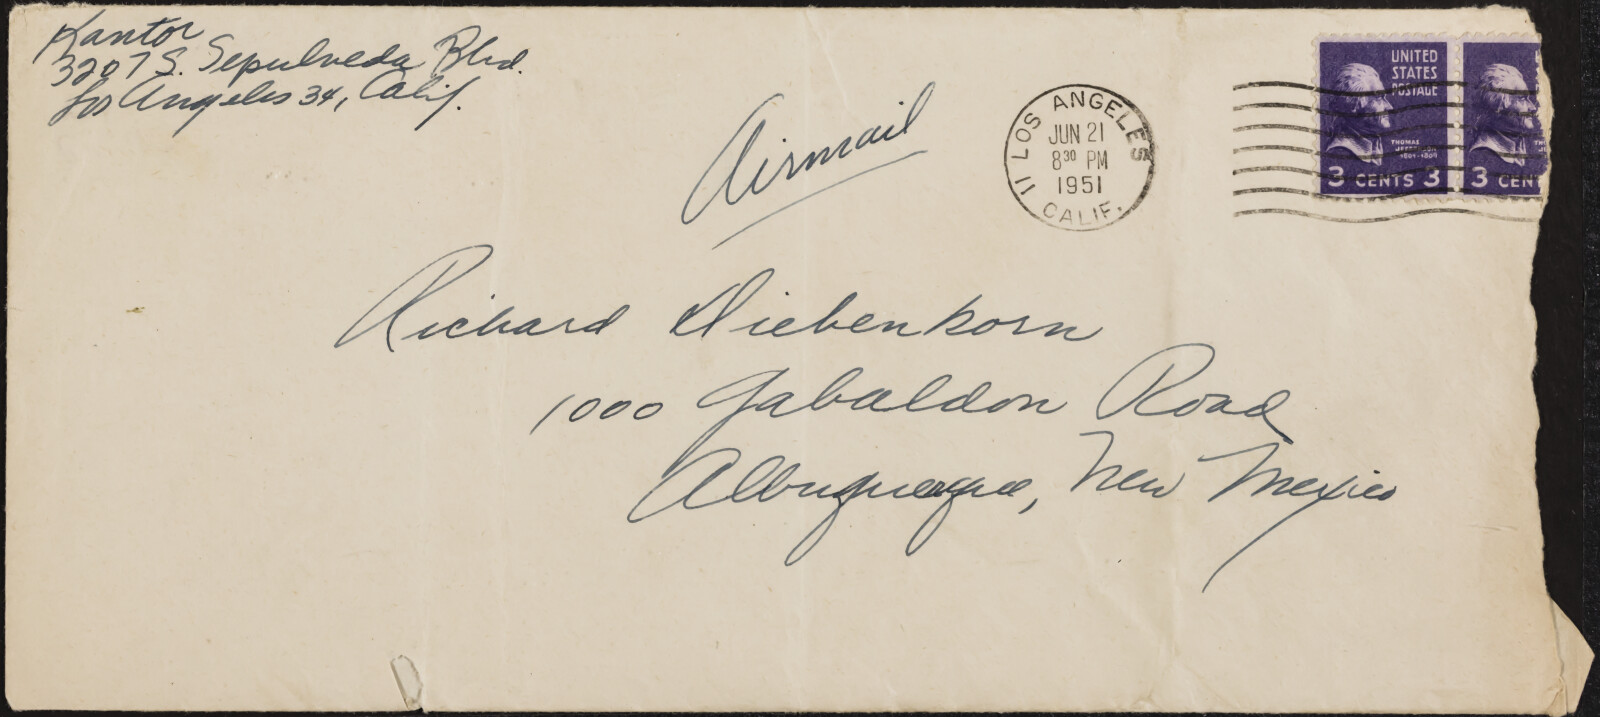 Kantor
3207 S. Sepulveda Blvd.
Los Angeles 34, Calif.
Airmail
LOS ANGELES
JUN 21
8 30 PM
1951
11
CALIF.
UNITED
STATES
POSTAGE
THOMAS
JEFFERSON
1801-1809
3 CENTS 3
3 CENT
Richard Diebenkorn
1000 Gabaldon Road
Albuquerque, New Mexico